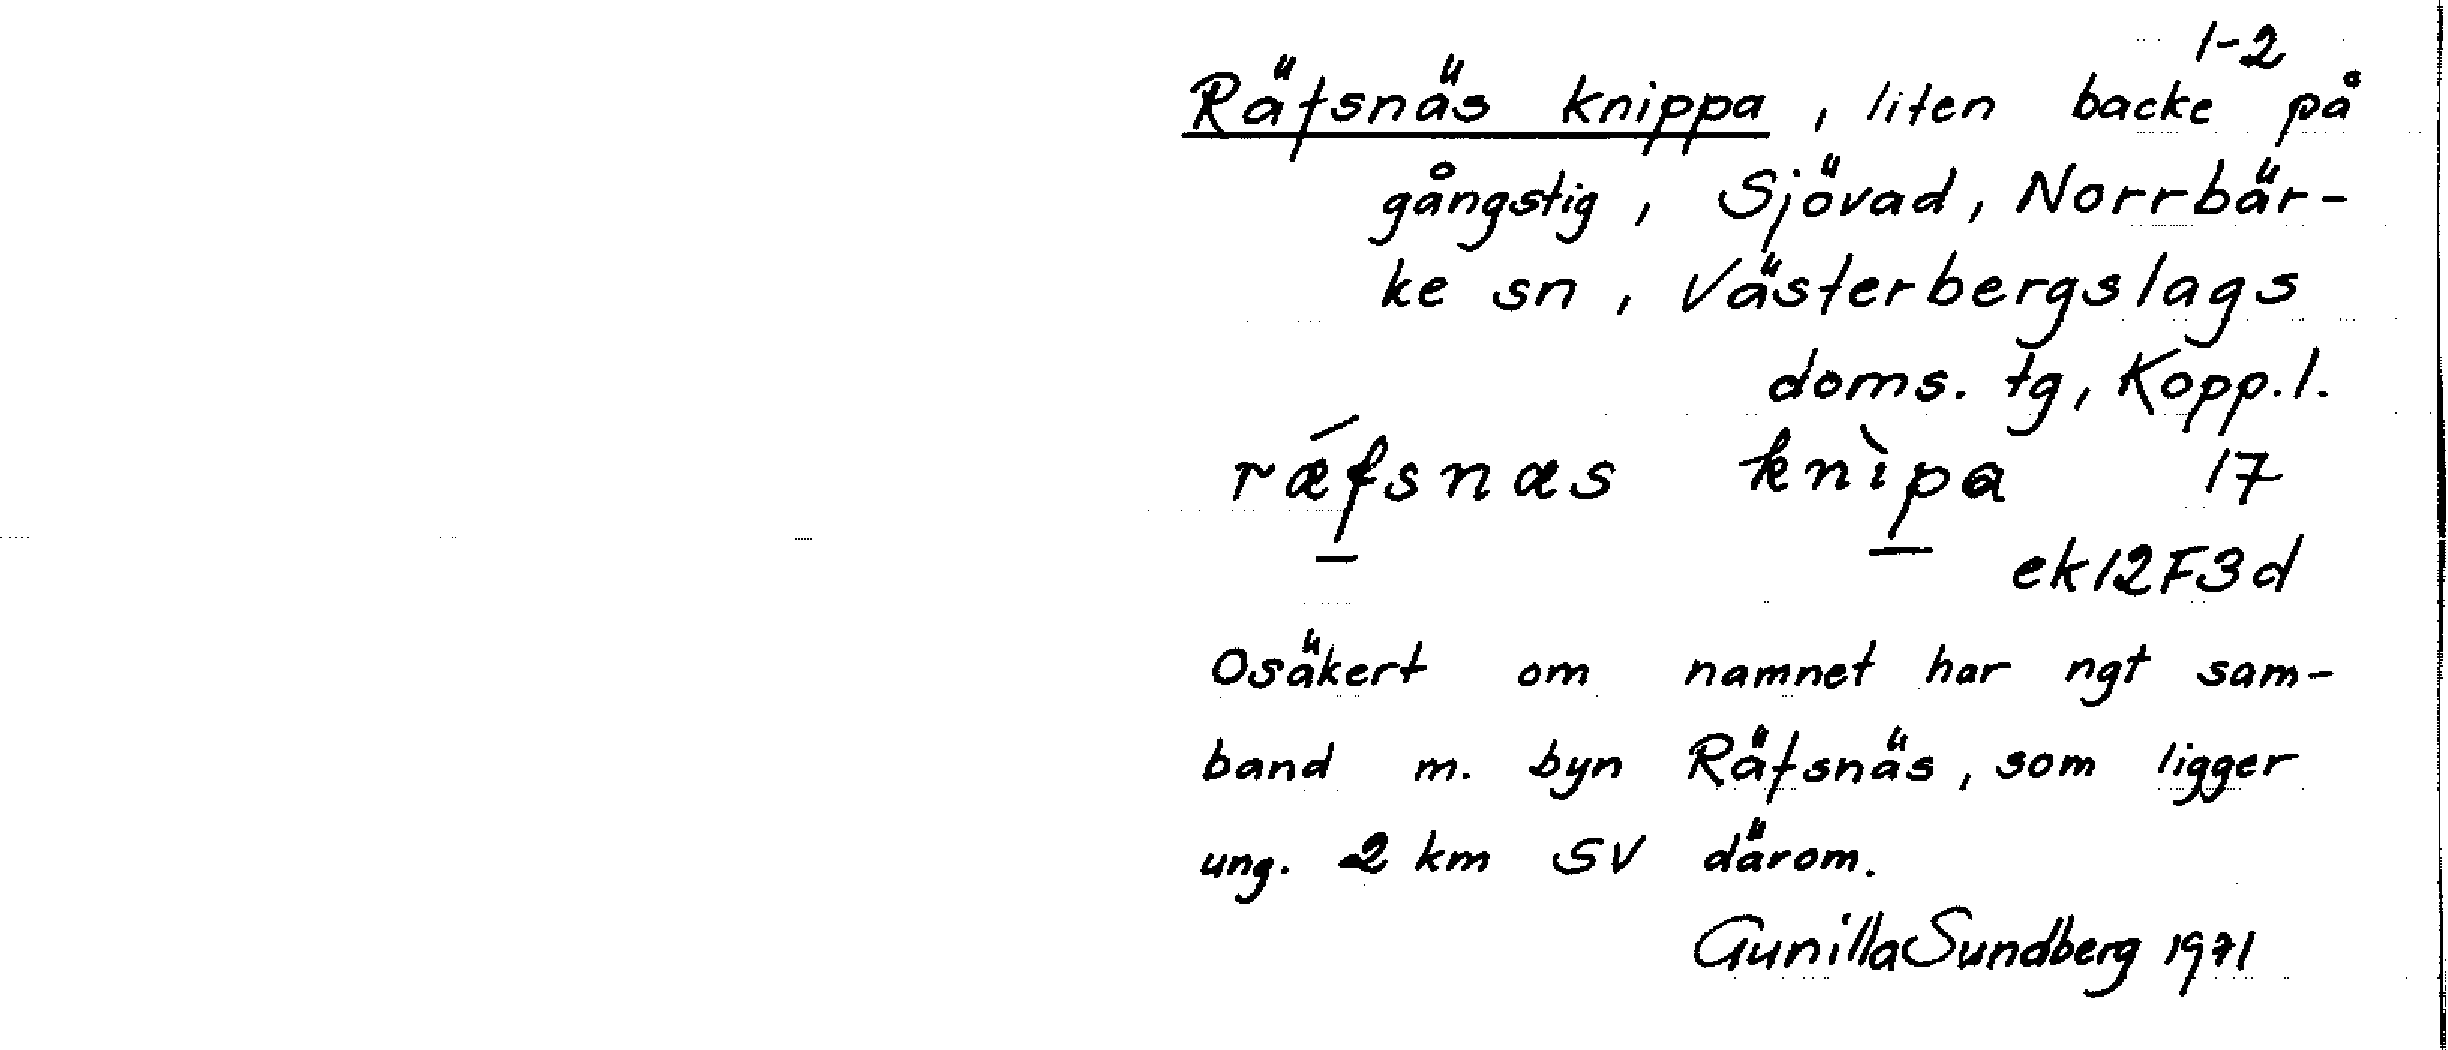 1-2
Räfsnäs knippa, liten backe på
gångstig, Sjövad, Norrbär-
ke sn, Västerbergslags
doms. tg, Kopp.l.
rǽfsnæs knìpa 17
ek12F3d
Osäkert om namnet har ngt sam-
band m. byn Räfsnäs, som ligger
ung. 2 km SV därom.
Gunilla Sundberg 1971